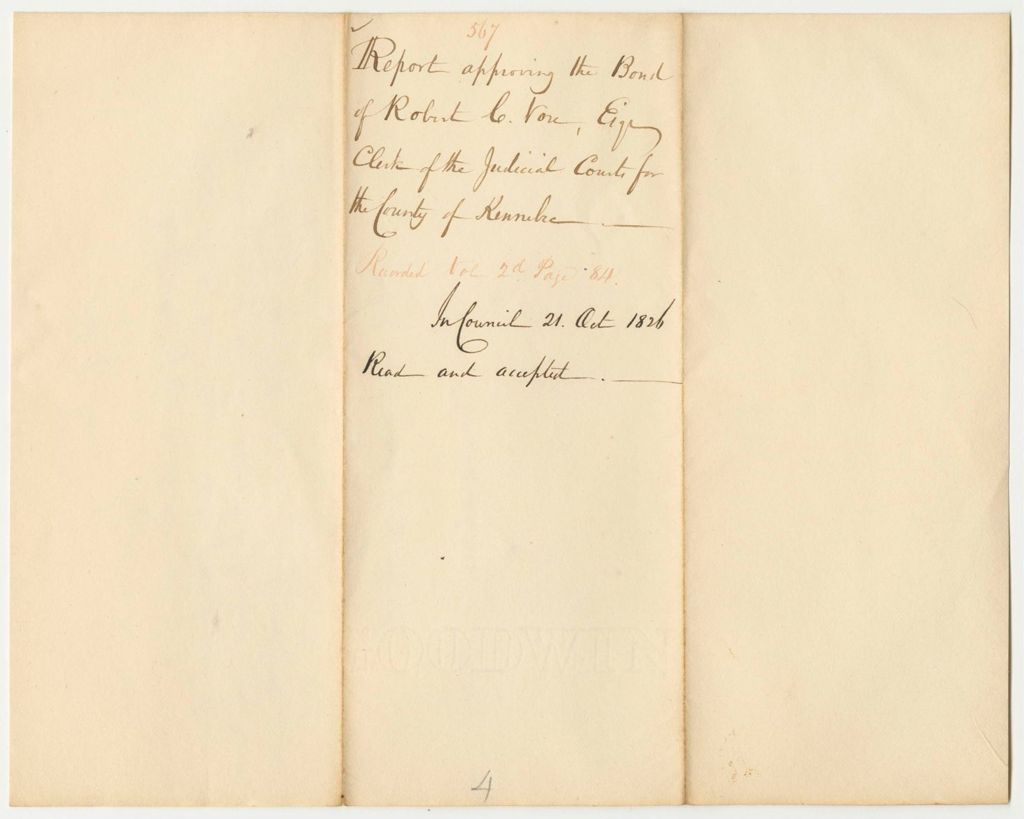 567
Report approving the Bond
of Robert C. Vose, Esqr
Clerk of the Judicial Courts for
the County of Kennebec
Recorded Vol 2d Page 84.
In Council 21. Oct 1826
Read and accepted.
4